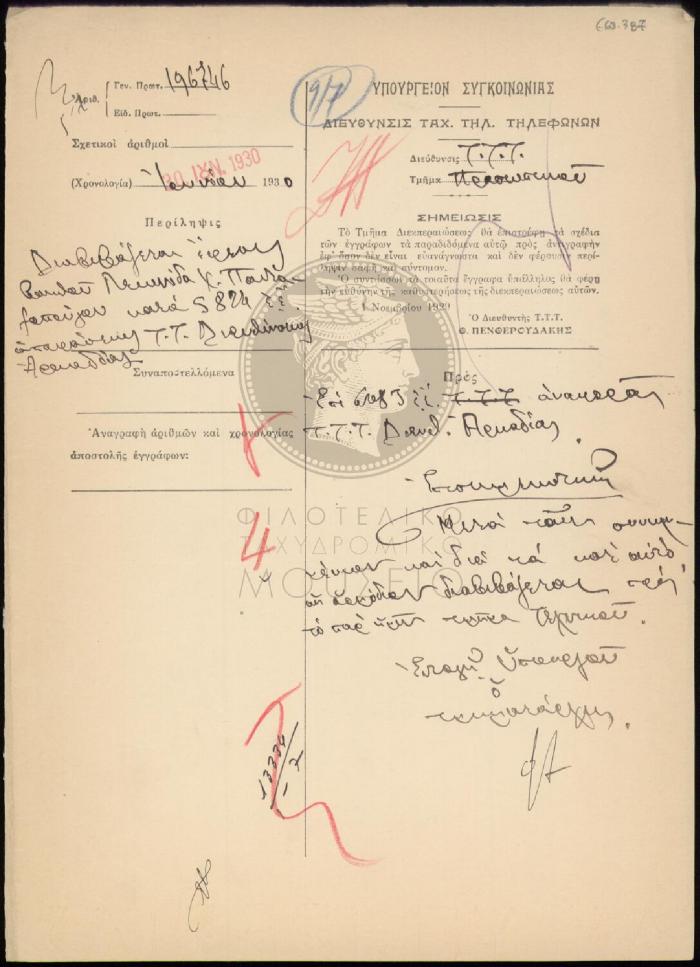 668.387
Ἀριθ.
Γεν. Πρωτ. 196746
Εἰδ. Πρωτ.
Σχετικοὶ ἀριθμοὶ
30 ΙΟΥΝ. 1930
(Χρονολογία) Ἰουνίου 1930
Περίληψις
Διαβιβάζεται
κατὰ
Τ.Τ. Διευθύνσεως
Ἀρκαδίας
Συναποστελλόμενα
Ἀναγραφὴ ἀριθμῶν καὶ χρονολογίας
ἀποστολῆς ἐγγράφων:
4
13334
7
9/7
ΥΠΟΥΡΓΕΙΟΝ ΣΥΓΚΟΙΝΩΝΙΑΣ
ΔΙΕΥΘΥΝΣΙΣ ΤΑΧ. ΤΗΛ. ΤΗΛΕΦΩΝΩΝ
Διεύθυνσις Τ.Τ.Τ.
Τμῆμα Προσωπικοῦ
ΣΗΜΕΙΩΣΙΣ
Τὸ Τμῆμα Διεκπεραιώσεως θὰ ἐπιστρέφῃ τὰ σχέδια
τῶν ἐγγράφων τὰ παραδιδόμενα αὐτῷ πρὸς ἀντιγραφὴν
ἐφ' ὅσον δὲν εἶναι εὐανάγνωστα καὶ δὲν φέρουσιν περί-
ληψιν σαφῆ καὶ σύντομον.
Ὁ συντάσσων τὰ τοιαῦτα ἔγγραφα ὑπάλληλος θὰ φέρῃ
τὴν εὐθύνην τῆς καθυστερήσεως τῆς διεκπεραιώσεως αὐτῶν.
1 Νοεμβρίου 1929
Ὁ Διευθυντὴς Τ.Τ.Τ.
Θ. ΠΕΝΘΕΡΟΥΔΑΚΗΣ
Πρὸς
Τ.Τ.Τ. ἀναφορᾶς
Τ.Τ.Τ. Διευθ. Ἀρκαδίας.
Ἐπιστρεπτέα
Μετὰ τῶν συνημ-
μένων καὶ διὰ τὰ κατ' αὐτὸ
διαβιβάζεται πρὸς
τὸ παρ' ὑμῖν τμῆμα Τεχνικοῦ.
Ἐντολῇ Ὑπουργοῦ
ὁ
τμηματάρχης
ΦΙΛΟΤΕΛΙΚΟ
ΤΑΧΥΔΡΟΜΙΚΟ
ΜΟΥΣΕΙΟ